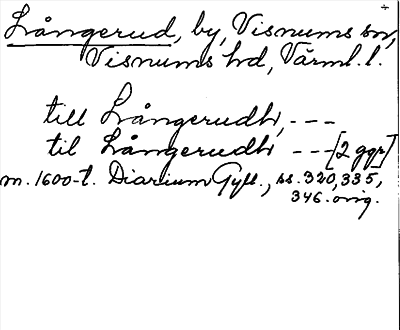 Långerud, by, Visnums sn,
Visnums hd, Värml. l.
till Långerudh, ---
til Långerudh ---[2 ggr]
m. 1600-t. Diarium Gyll., ss. 320, 335,
346. orig.